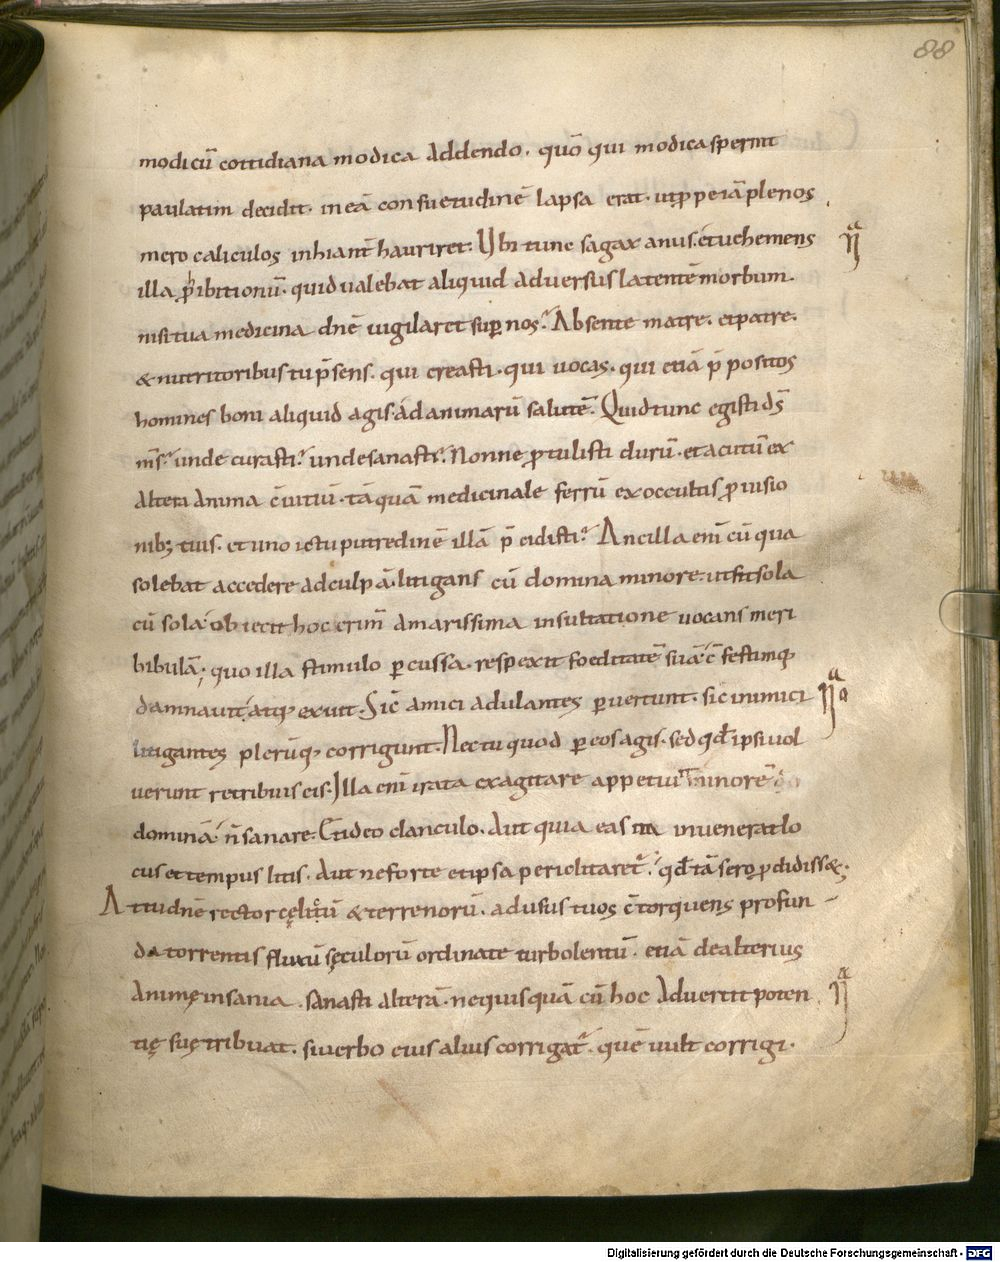 88
modicū cottidiana modica addendo. quō qui modica spernit
paulatim decidit. in eā consuetudinē lapsa erat. ut ꝓpe iā plenos
mero caliculos inhiant̄ hauriret. Ubi tunc sagax anus. et uehemens
illa p̄ibitionū. quid ualebat aliquid aduersus latentē morbum.
nisi tua medicina dn̄e uigilaret suꝑ nos? Absente matre. et patre.
& nutritoribus tu p̄sens. qui creasti. qui uocas. qui etiā p̄positos
homines boni aliquid agis. ad animarū salutē. Quid tunc egisti dš
mš? unde curasti? unde sanasti? Nonne ꝓtulisti durū. et acutū ex
altera anima c̄uitiū. tāquā medicinale ferrū ex occultis ꝓuisio
nibꝫ tuis. et uno ictu putredinē illā p̄cidisti? Ancilla eni cū qua
solebat accedere ad culpā. litigans cū domina minore. ut fit sola
cū sola. obiecit hoc crim̄ amarissima insultatione uocans meri
bibulā; quo illa stimulo ꝑcussa. respexit foeditatē suā. c̄festimqꝫ
damnauit. atqꝫ exuit. Sic amici adulantes ꝑuertunt. sic inimici
litigantes plerūqꝫ corrigunt. Nec tu quod ꝑ eos agis. sed qđ ipsi uol
uerunt retribuis eis. Illa eni irata exagitare appetiuit minorē
dominā. n̄ sanare. Et ideo clanculo. Aut quia eas ita inuenerat lo
cus et tempus litis. Aut ne forte et ipsa periclitaret̄. qđ tā sero ꝓdidiss&.
At tu dn̄e rector cęlitū & terrenorū. ad usus tuos c̄torquens profun-
da torrentis fluxū sęculorū ordinate turbolentū. etiā de alterius
animę insania. sanasti alterā. ne quisquā cū hoc aduertit poten
tię suę tribuat. si uerbo eius alius corrigat̄. quē uult corrigi.
Digitalisierung gefördert durch die Deutsche Forschungsgemeinschaft - DFG